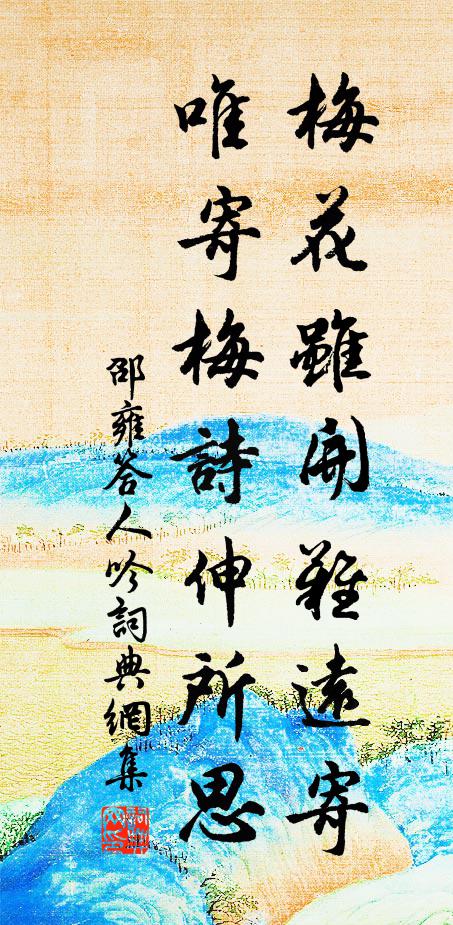 梅花雖開難遠寄
唯寄梅詩伸所思
邵雍答人吟詞典網集